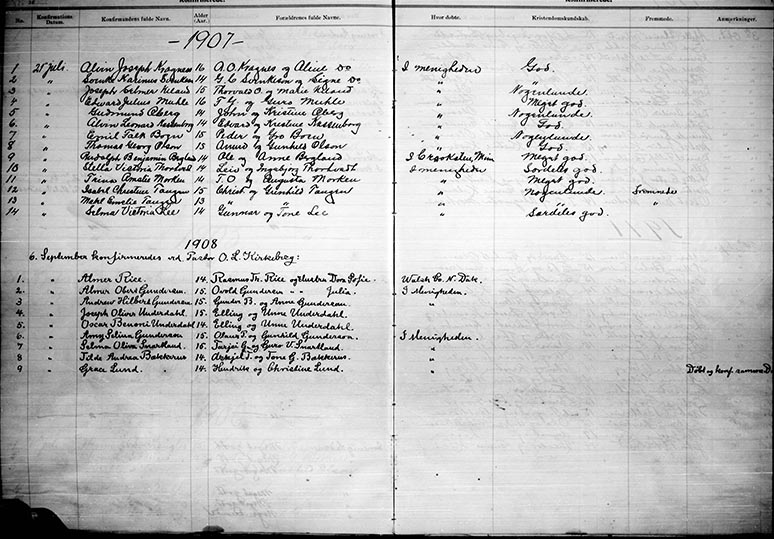 Konfirmerede. Konfirmerede.
No. Konfirmations Datum. Konfirmandens fulde Navn. Alder (Aar.) Forældrenes fulde Navne. Hvor døbte. Kristendomskundskab. Fremmede. Anmerkninger.
-1907-
1 21 juli Alvin Joseph Kragness 16 A.O. Kragnes og Alice Do I menigheden God.
2 " 14 G. C. og Signe Do " "
3 " Joseph Celmer 15 Thorvald O. og Marie " Nogenlunde.
4 " Edward Julius Muhle 16 T G og Guro Muhle " Meget god.
5 " Gudmund Oberg 14 John og Kristine Oberg " Nogenlunde.
6 " Alvin Leonard Nassenborg 14 Edward og Kristine Nassenborg " God.
7 " Emil Falk Boen 15 Peder og Gro Boen " Nogenlunde.
8 " Thomas Georg Olson 13 og Gunhild Olson " God.
9 " Rudolph Benjamin Bergland 14 Ole og Anne Bergland I Crookston, Minn Meget god.
10 " Stella Victoria 14 Leiv og Ingebjorg I menigheden Særdeles god.
11 " Trina Amalie Morken 14 T. O og Augusta Morken " Meget god.
12 " Isabel Christine Taugen 15 Christ og Gunhild Taugen " Nogenlunde Fremmede
13 " Emelia Taugen 13 " " " " "
14 " Selma Victoria Lee 14 Gunnar og Tone Lee " Særdeles god.
1908
6. September konfirmeredes ved Pastor O. L. Kirkeberg:
1. " Almer Rice. 14. Rasmus Th. Rice og Hustru Dora Sofie. Walsh Co. N. Dak.
2. " Almer Obert Gunderson. 15. Osvold Gunderson " " Julia. I Menigheden.
3 " Andrew Hilbert Gunderson 15. Gunder B. og Anne Gunderson. "
4. " Joseph Oliver Underdahl. 15. Elling og Unne Underdahl.
5. " Oscar Benoni Underdahl 14. Elling og Unne Underdahl.
6. " Amy Selina Gunderson 15. Olaus T. og Gunhild Gunderson. I Menigheden.
7 " Selma Olivia Snartland. 15. Tarjei G. og Guro V. Snartland. "
8 " Tilda Andrea Bakkerus 14. T. og Tone G. Bakkerus. "
9 " Grace Lund. 14. Hendrik og Christine Lund. " Døbt og konf. samme D